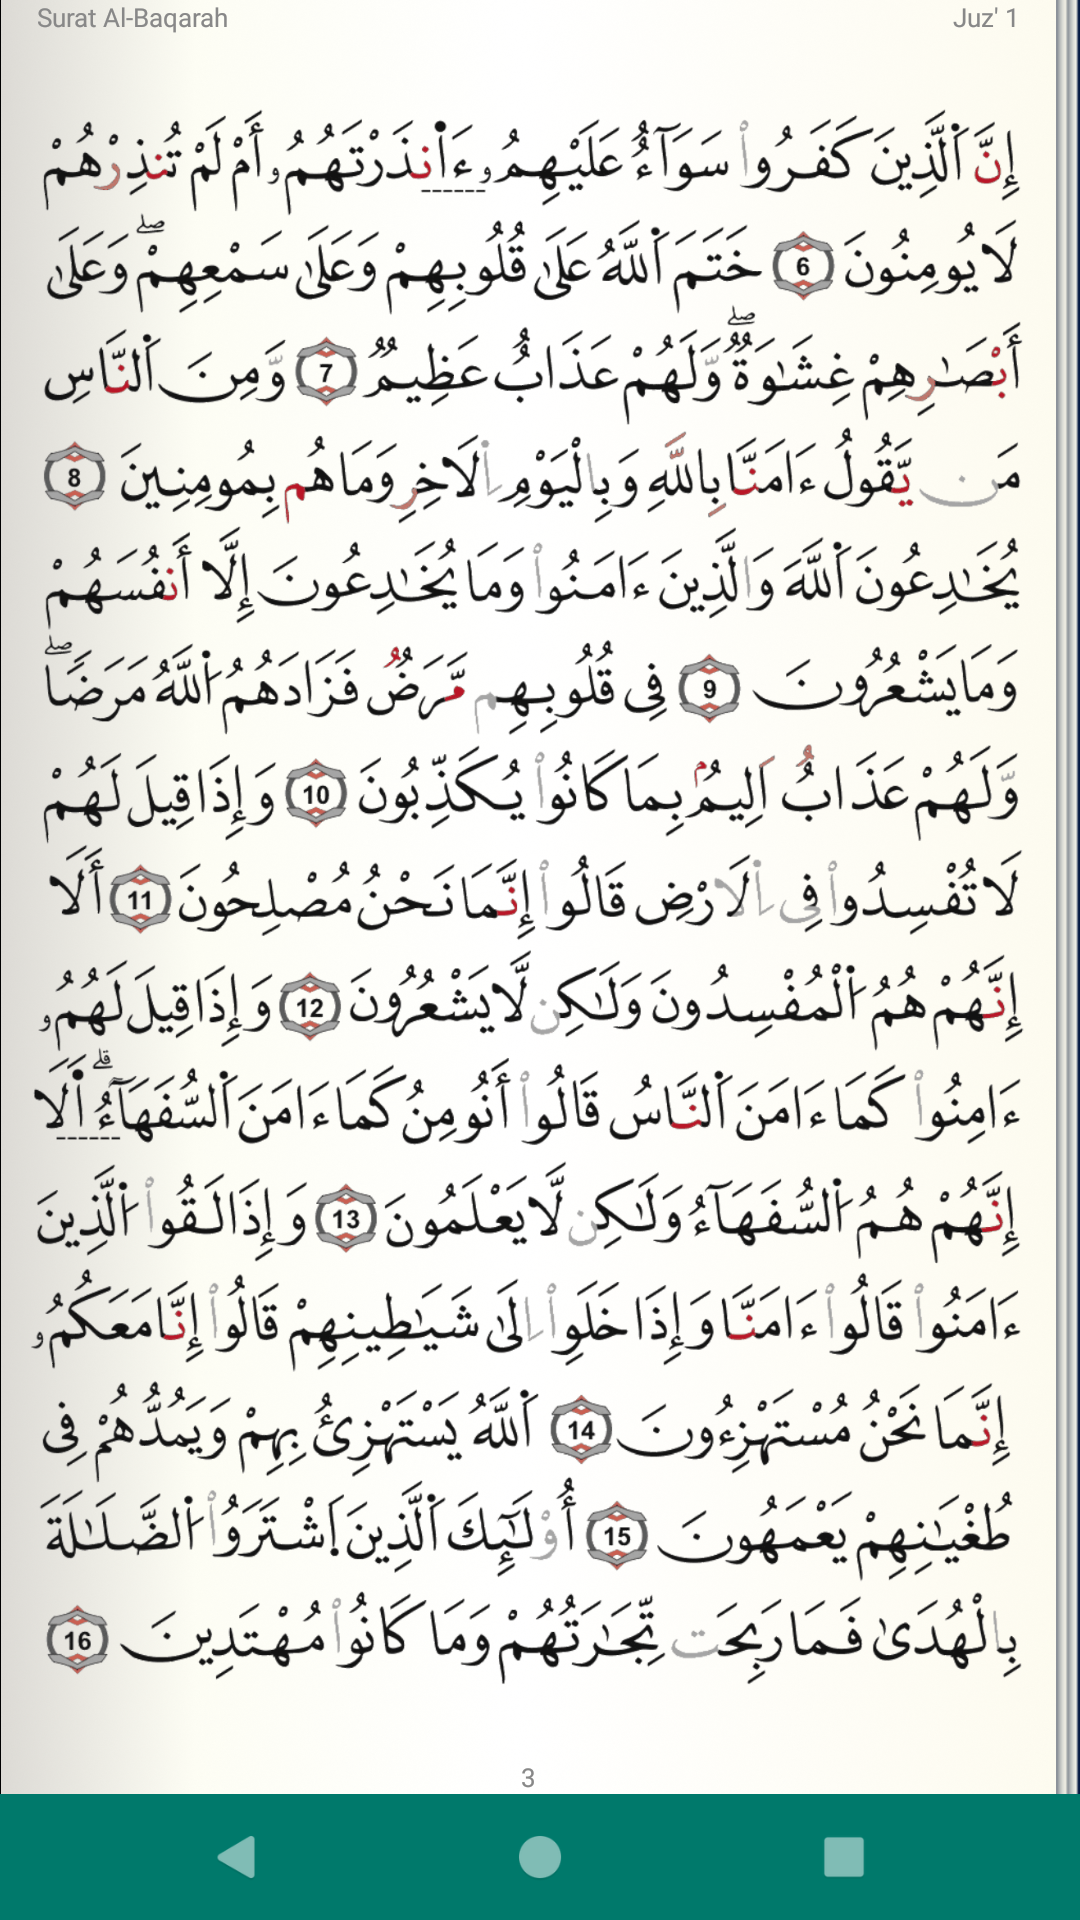 Surat Al-Baqarah
Juz' 1
إِنَّ اَ۬لَّذِينَ كَفَرُواْ سَوَآءٌ عَلَيْهِمُۥٓ ءَا۬نذَرْتَهُمُۥٓ أَمْ لَمْ تُنذِرْهُمْ
لَا يُومِنُونَ 6 خَتَمَ اَ۬للَّهُ عَلَىٰ قُلُوبِهِمْ وَعَلَىٰ سَمْعِهِمْۖ وَعَلَىٰ
أَبْصَٰرِهِمْ غِشَٰوَةٞۖ وَلَهُمْ عَذَابٌ عَظِيمٞ 7 وَمِنَ اَ۬لنَّاسِ
مَنْ يَّقُولُ ءَامَنَّا بِاللَّهِ وَبِالْيَوْمِ اِ۬لَاخِرِ وَمَا هُم بِمُومِنِينَ 8
يُخَٰدِعُونَ اَ۬للَّهَ وَالَّذِينَ ءَامَنُواْ وَمَا يُخَٰدِعُونَ إِلَّا أَنفُسَهُمْ
وَمَا يَشْعُرُونَ 9 فِى قُلُوبِهِم مَّرَضٞ فَزَادَهُمُ اُ۬للَّهُ مَرَضٗاۖ
وَلَهُمْ عَذَابٌ اَلِيمُۢ بِمَا كَانُواْ يُكَذِّبُونَ 10 وَإِذَا قِيلَ لَهُمْ
لَا تُفْسِدُواْ فِى اِ۬لَارْضِ قَالُواْ إِنَّمَا نَحْنُ مُصْلِحُونَ 11 أَلَا
إِنَّهُمْ هُمُ اُ۬لْمُفْسِدُونَ وَلَٰكِن لَّا يَشْعُرُونَ 12 وَإِذَا قِيلَ لَهُمُۥ
ءَامِنُواْ كَمَا ءَامَنَ اَ۬لنَّاسُ قَالُواْ أَنُومِنُ كَمَا ءَامَنَ اَ۬لسُّفَهَآءُۗ اَ۬لَا
إِنَّهُمْ هُمُ اُ۬لسُّفَهَآءُ وَلَٰكِن لَّا يَعْلَمُونَ 13 وَإِذَا لَقُواْ اُ۬لَّذِينَ
ءَامَنُواْ قَالُواْ ءَامَنَّا وَإِذَا خَلَوِاْ اِلَىٰ شَيَٰطِينِهِمْ قَالُواْ إِنَّا مَعَكُمُۥ
إِنَّمَا نَحْنُ مُسْتَهْزِءُونَ 14 اَ۬للَّهُ يَسْتَهْزِئُ بِهِمْ وَيَمُدُّهُمْ فِى
طُغْيَٰنِهِمْ يَعْمَهُونَ 15 أُوْلَٰٓئِكَ اَ۬لَّذِينَ اَ۪شْتَرَوُاْ اُ۬لضَّلَٰلَةَ
بِالْهُدَىٰ فَمَا رَبِحَت تِّجَٰرَتُهُمْ وَمَا كَانُواْ مُهْتَدِينَ 16
3